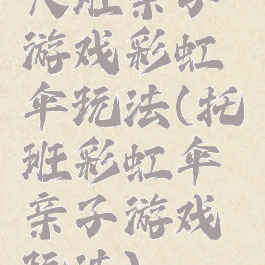 大班亲子
游戏彩虹
伞玩法(托
班彩虹伞
亲子游戏
玩法)